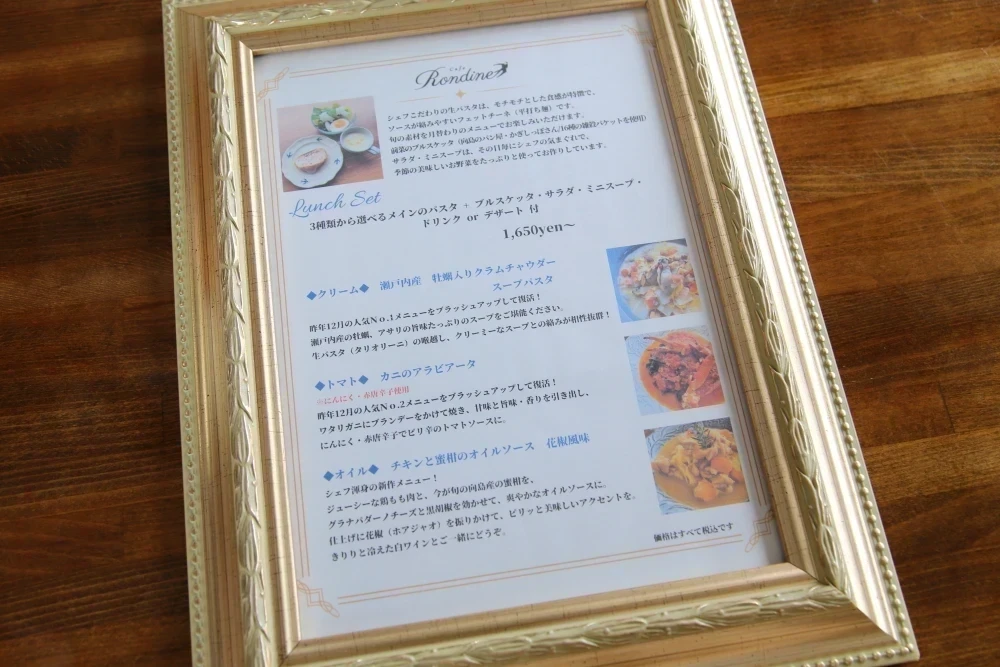 Cafe
Rondine
シェフこだわりの生パスタは、モチモチとした食感が特徴で、
ソースが絡みやすいフェットチーネ（平打ち麺）です。
旬の素材を月替わりのメニューでお楽しみいただけます。
前菜のブルスケッタ（向島のパン屋・かぎしっぽさん/16種の雑穀バケットを使用）
サラダ・ミニスープは、その日毎にシェフの気まぐれで、
季節の美味しいお野菜をたっぷりと使ってお作りしています。
Lunch Set
3種類から選べるメインのパスタ + ブルスケッタ・サラダ・ミニスープ・
ドリンク or デザート 付
1,650yen～
◆クリーム◆ 瀬戸内産 牡蠣入りクラムチャウダー
スープパスタ
昨年12月の人気No.1メニューをブラッシュアップして復活！
瀬戸内産の牡蠣、アサリの旨味たっぷりのスープをご堪能ください。
生パスタ（タリオリーニ）の喉越し、クリーミーなスープとの絡みが相性抜群！
◆トマト◆ カニのアラビアータ
※にんにく・赤唐辛子使用
昨年12月の人気No.2メニューをブラッシュアップして復活！
ワタリガニにブランデーをかけて焼き、甘味と旨味・香りを引き出し、
にんにく・赤唐辛子でピリ辛のトマトソースに。
◆オイル◆ チキンと蜜柑のオイルソース 花椒風味
シェフ渾身の新作メニュー！
ジューシーな鶏もも肉と、今が旬の向島産の蜜柑を、
グラナパダーノチーズと黒胡椒を効かせて、爽やかなオイルソースに。
仕上げに花椒（ホアジャオ）を振りかけて、ピリッと美味しいアクセントを。
きりりと冷えた白ワインとご一緒にどうぞ。
価格はすべて税込です